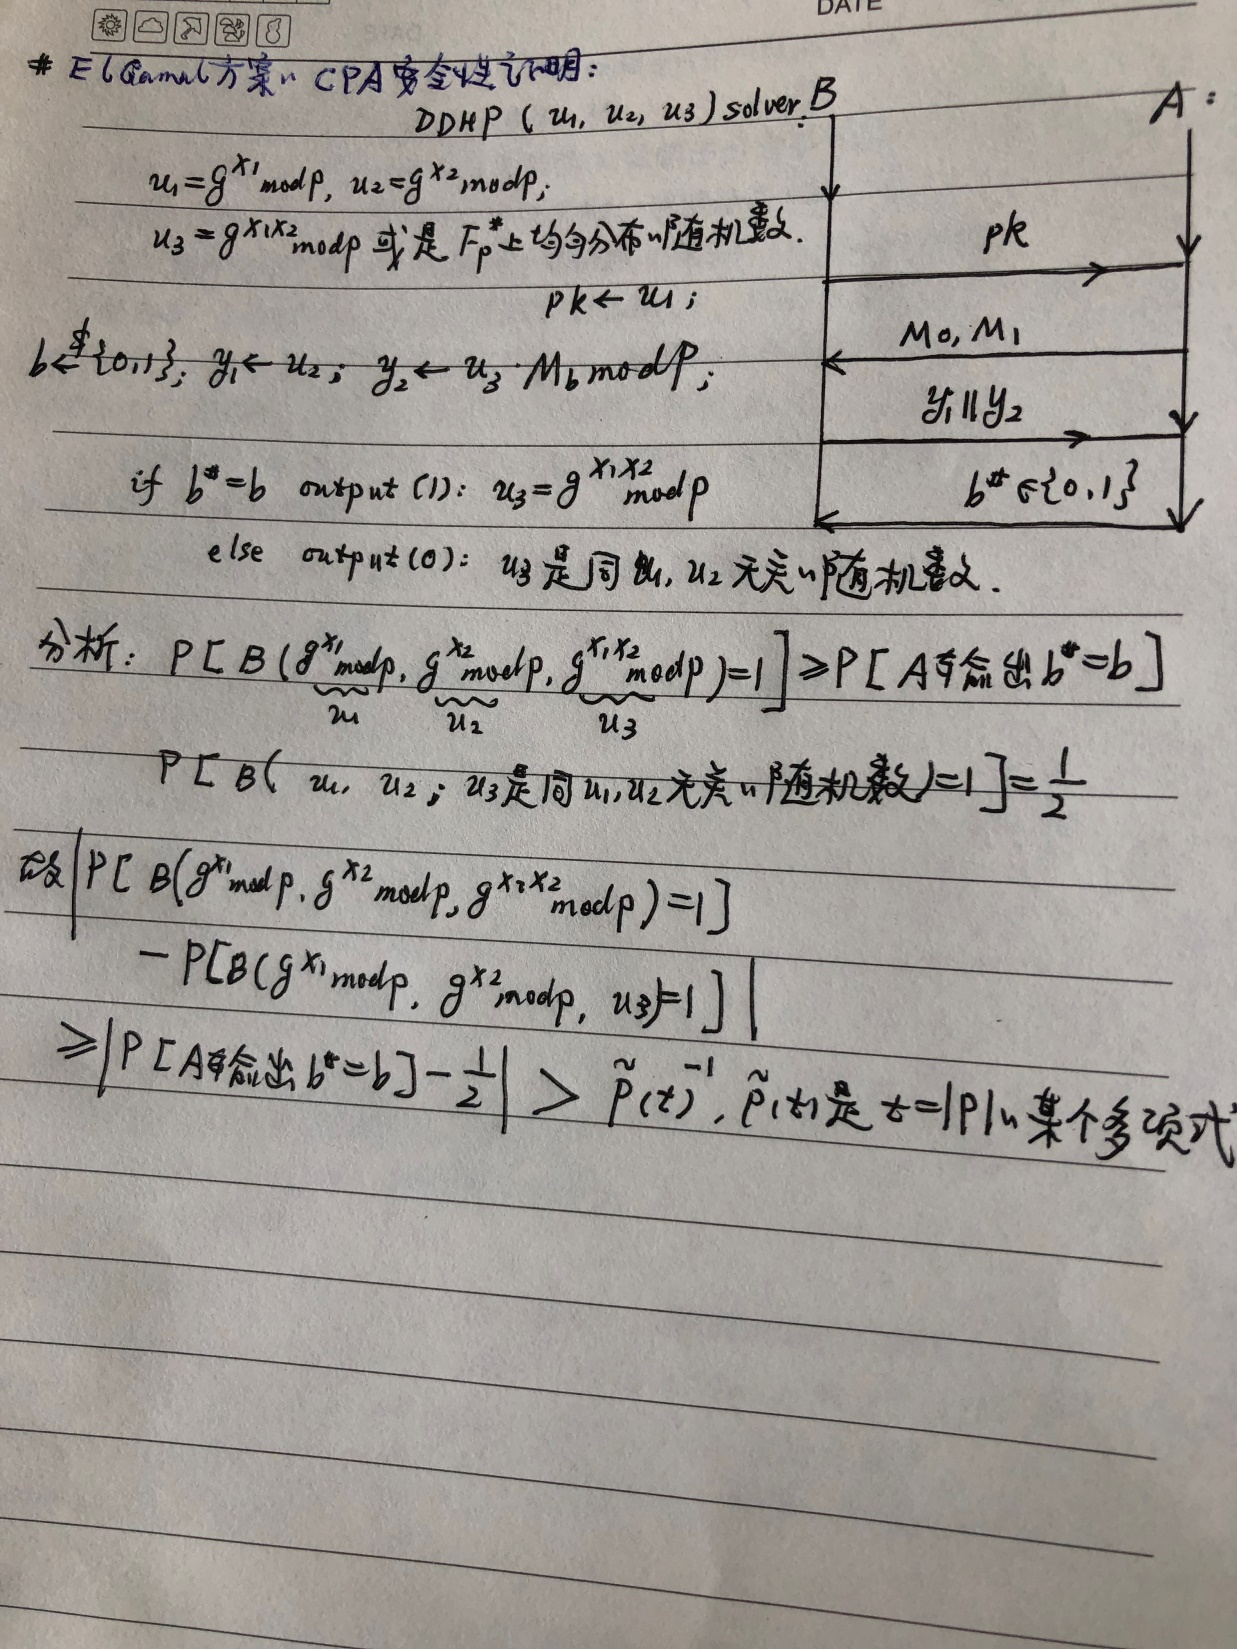 DATE
# ElGamal方案的CPA安全性证明:
DDHP (u₁, u₂, u₃) solver B:
A:
u₁=g^x₁ mod p, u₂=g^x₂ mod p;
u₃=g^x₁x₂ mod p 或是 F_p^* 上均匀分布的随机数.
pk
pk←u₁;
M₀, M₁
b←^${0,1}; y₁←u₂; y₂←u₃·M_b mod p;
y₁||y₂
if b*=b output(1): u₃=g^x₁x₂ mod p
b*∈{0,1}
else output(0): u₃是同u₁, u₂无关的随机数.
分析: P[B(g^x₁ mod p, g^x₂ mod p, g^x₁x₂ mod p)=1]≥P[A输出b*=b]
u₁ u₂ u₃
P[B(u₁, u₂; u₃是同u₁,u₂无关的随机数)=1]=1/2
故|P[B(g^x₁ mod p, g^x₂ mod p, g^x₁x₂ mod p)=1]
-P[B(g^x₁ mod p, g^x₂ mod p, u₃)=1]|
≥|P[A输出b*=b]-1/2| > p̃(t)^-1, p̃(t)是t=|p|的某个多项式